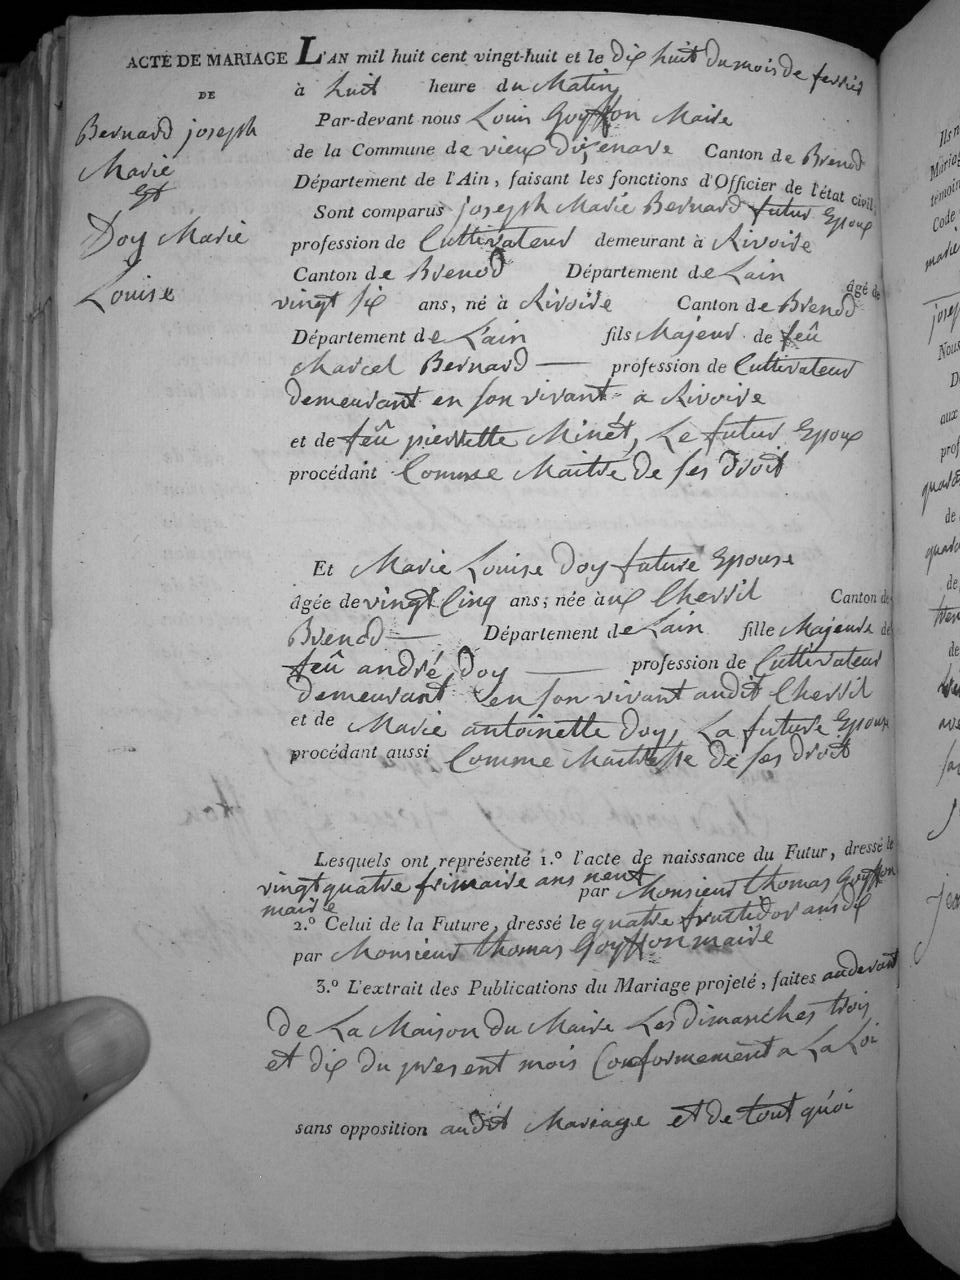 ACTE DE MARIAGE
DE
Bernard joseph
Marie
et
Doy Marie
Louise
L'AN mil huit cent vingt-huit et le dix huit du mois de fevrier
à huit heure du Matin
Par-devant nous Louis Goyffon Maire
de la Commune de vieux dizenave Canton de Brenod
Département de l'Ain, faisant les fonctions d'Officier de l'état civil,
Sont comparus joseph Marie Bernard futur Epoux
profession de Cultivateur demeurant à Rivoire
Canton de Brenod Département de Lain âgé de
vingt six ans, né à Rivoire Canton de Brenod
Département de L'ain fils Majeur de feû
Marcel Bernard profession de Cultivateur
demeurant en son vivant à Rivoire
et de feû pierrette Minét, Le futur Epoux
procédant Comme Maitre de ses droit
Et Marie Louise Doy future Epouse
âgée de vingt Cinq ans; née à ux Cherril Canton de
Brenod Département de Lain fille Majeure de
feû andré Doy profession de Cultivateur
demeurant en son vivant audit Cherril
et de Marie antoinette Doy, La future Epouse
procédant aussi Comme Maitresse de ses droit
Lesquels ont représenté 1.º l'acte de naissance du Futur, dressé le
vingtquatre frimaire ans neuf par Monsieur thomas Goyffon
maire
2.º Celui de la Future, dressé le quatre fructidor ans dix
par Monsieur thomas Goyffon maire
3.º L'extrait des Publications du Mariage projeté, faites audevant
de La Maison du Maire Les dimanches trois
et dix du present mois Conformement a La Loi
sans opposition audit Mariage et de tout quoi